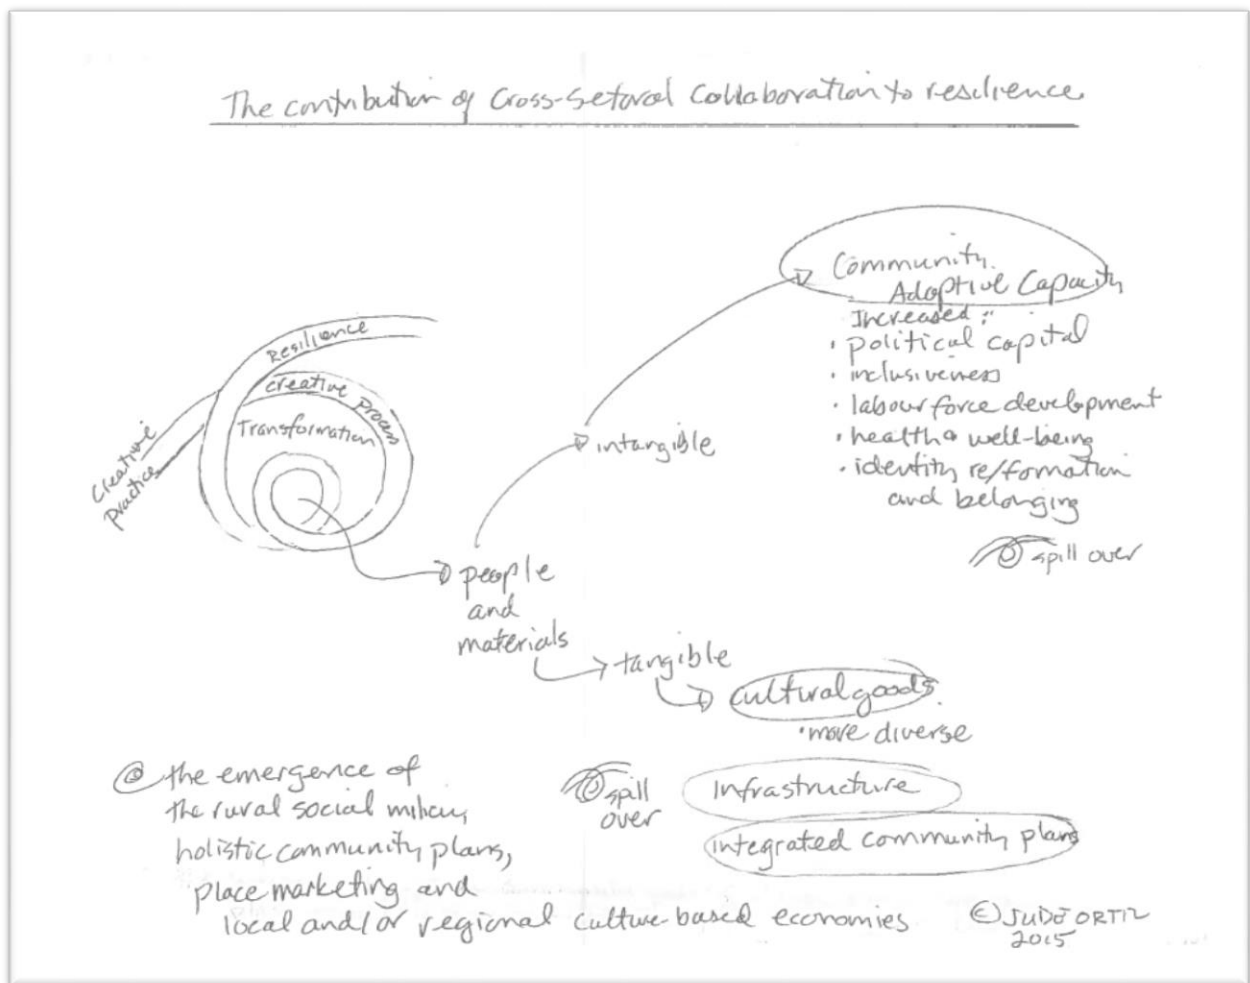 The contribution of Cross-Setoral Collaboration to resilience
Resilience
creative process
Transformation
Creative
practice
people
and
materials
intangible
Community
Adaptive Capacity
Increased:
• political capital
• inclusiveness
• labour force development
• health & well-being
• identity re/formation
and belonging
spill over
tangible
cultural goods
• more diverse
spill
over
Infrastructure
integrated community plans
the emergence of
the rural social milieu,
holistic community plans,
place marketing and
local and/or regional culture-based economies
© JUDE ORTIZ
2015